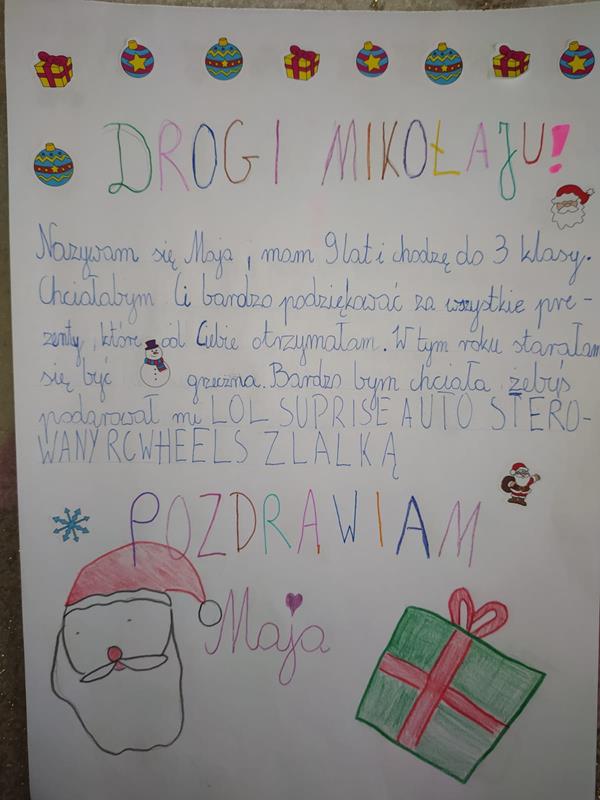 DROGI MIKOŁAJU!
Nazywam się Maja i mam 9 lat i chodzę do 3 klasy.
Chciałabym Ci bardzo podziękować za wszystkie pre-
zenty, które od Ciebie otrzymałam. W tym roku starałam
się być grzeczna. Bardzo bym chciała żebyś
podarował mi LOL SUPRISE AUTO STERO-
WANY RC WHEELS Z LALKĄ
POZDRAWIAM
Maja